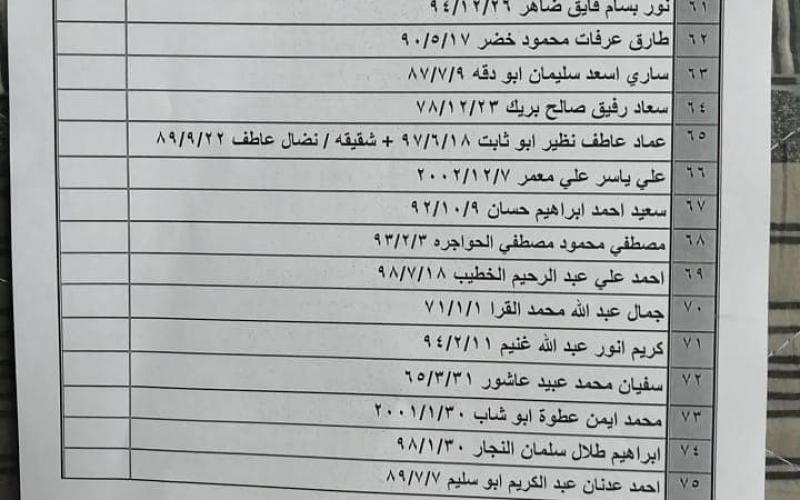 ٦١ نور بسام فايق ضاهر ٩٤/١٢/٢٦
٦٢ طارق عرفات محمود خضر ٩٠/٥/١٧
٦٣ ساري اسعد سليمان ابو دقه ٨٧/٧/٩
٦٤ سعاد رفيق صالح بريك ٧٨/١٢/٢٣
٦٥ عماد عاطف نظير ابو ثابت ٩٧/٦/١٨ + شقيقه / نضال عاطف ٨٩/٩/٢٢
٦٦ علي ياسر علي معمر ٢٠٠٢/١٢/٧
٦٧ سعيد احمد ابراهيم حسان ٩٢/١٠/٩
٦٨ مصطفي محمود مصطفي الحواجره ٩٣/٢/٣
٦٩ احمد علي عبد الرحيم الخطيب ٩٨/٧/١٨
٧٠ جمال عبد الله محمد القرا ٧١/١/١
٧١ كريم انور عبد الله غنيم ٩٤/٢/١١
٧٢ سفيان محمد عبيد عاشور ٦٥/٣/٣١
٧٣ محمد ايمن عطوة ابو شاب ٢٠٠١/١/٣٠
٧٤ ابراهيم طلال سلمان النجار ٩٨/١/٣٠
٧٥ احمد عدنان عبد الكريم ابو سليم ٨٩/٧/٧